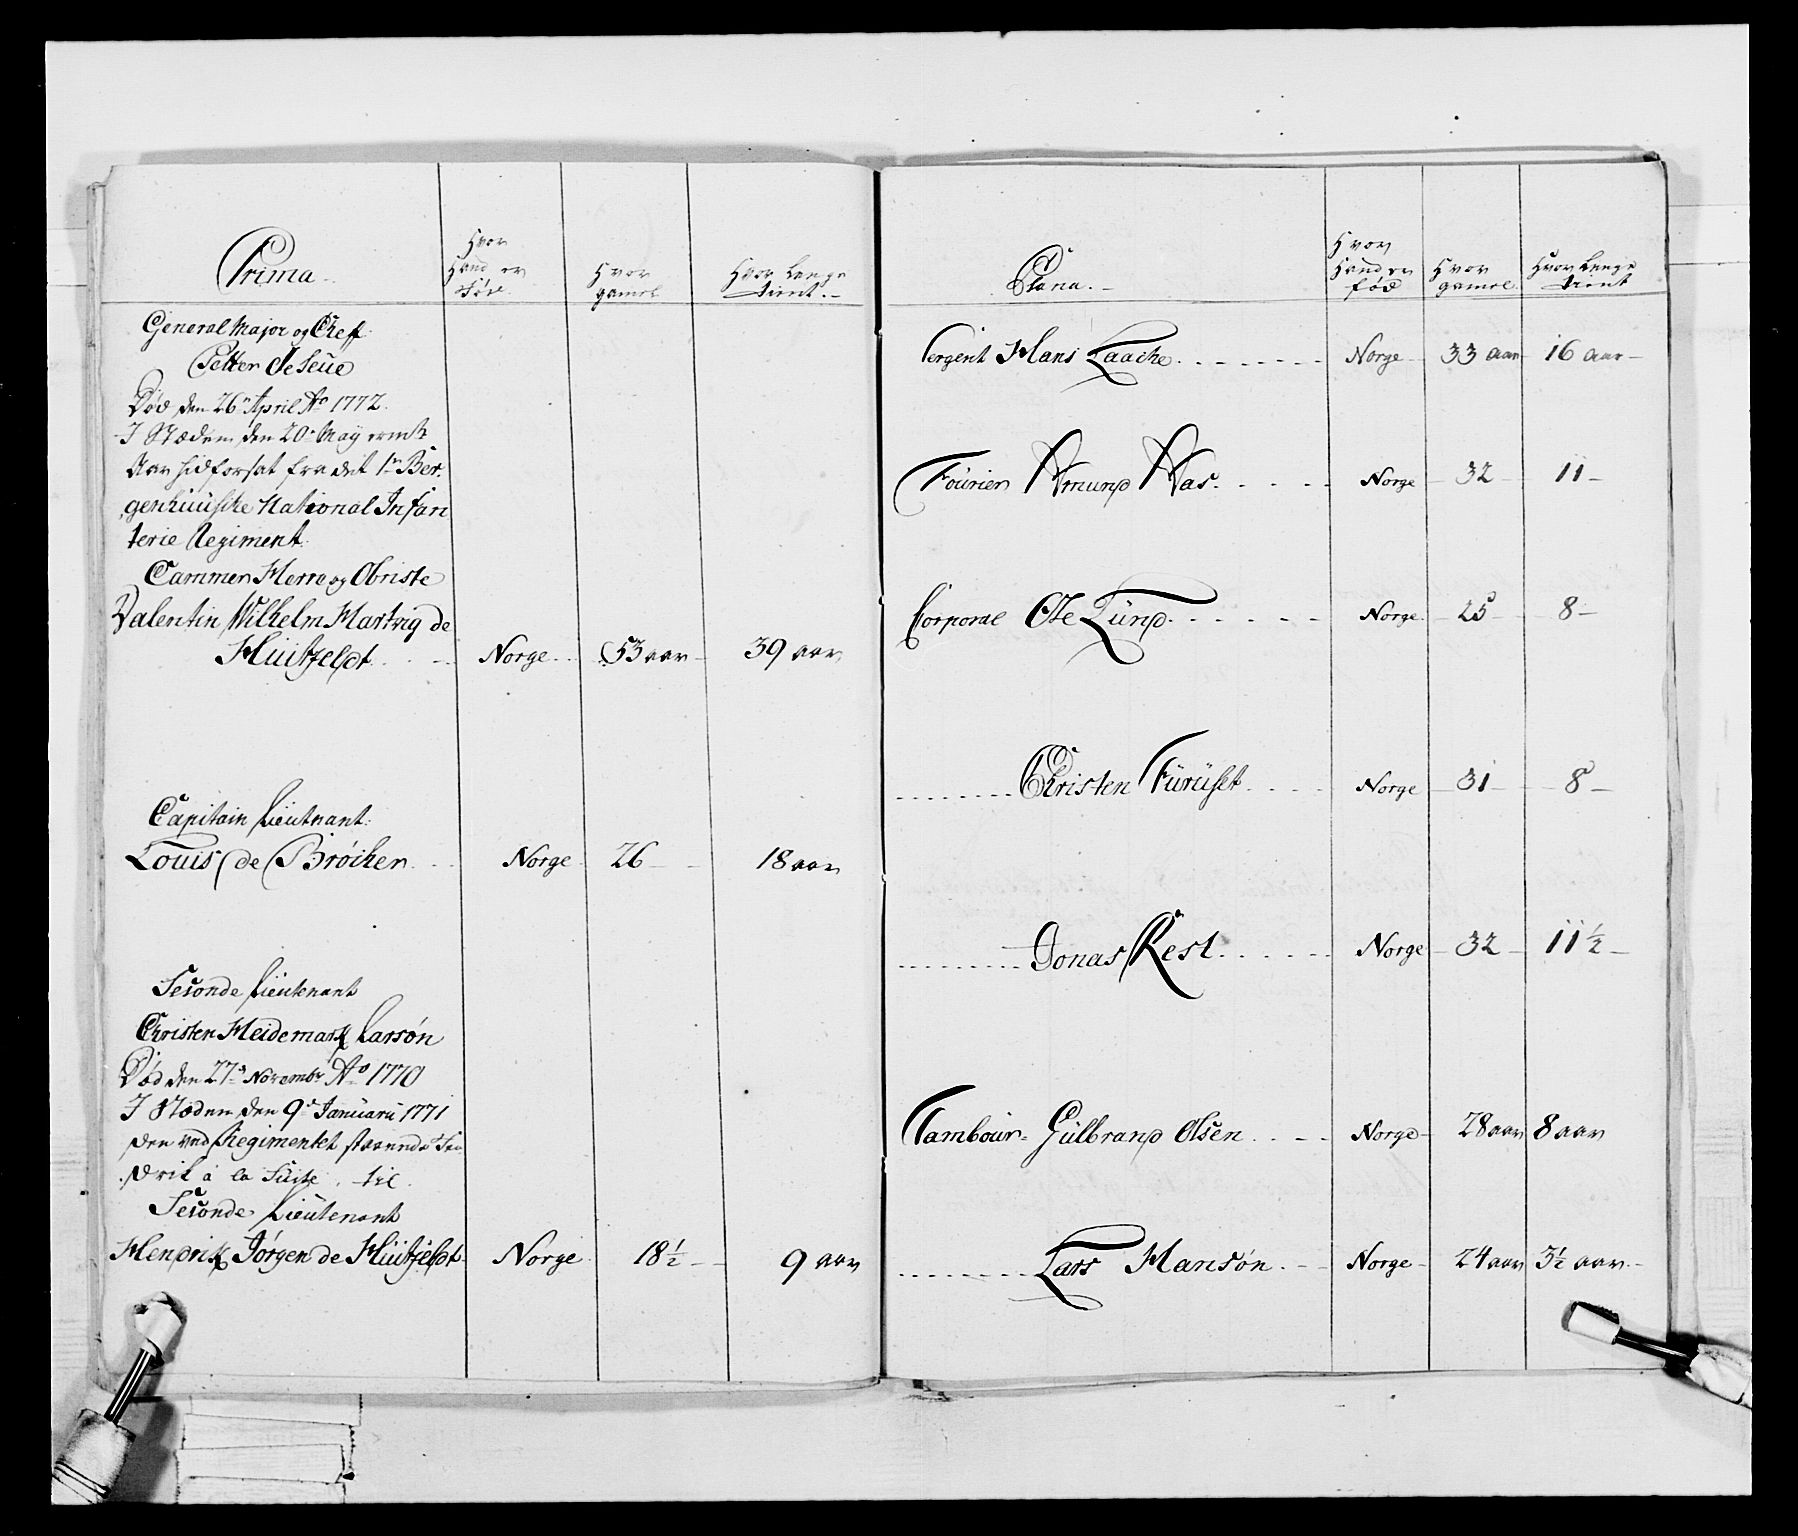 Prima
Hvor
Hand er
Föd
Hvor
gamel
Hvor Længe
tient.
General Major og Chef
Petter de Seüe
Död den 26n April Ao 1772.
I Stæden den 20n May ermte
Aar hidforsat fra det 1te Ber-
genhuusche National Infan
terie Regiment.
Cammer Herre og Obriste
Valentin Wilhelm Hartvig de
Hüitfeldt Norge 53 aar 39 aar
Capitain Lieütnant
Louis de Bröcker Norge 26 18 aar
Seconde Lieütenant
Christen Heidemark Larsøn
Död den 27de Novembr Ao 1770
I Stæden den 9de Januarii 1771
den ved Regimentet staaende Fen
drik a la Süite til
Seconde Lieütenant
Hendrik Jørgen de Hüitfeldt Norge 18½ 9 aar
Plana.
Hvor
Hand er
föd
Hvor
gamel
Hvor Længe
tient
Sergent Hans Laache Norge 33 aar 16 aar
Fourier Amund Aas Norge 32 11
Corporal Ole Lünd Norge 25 8
Christen Fürüset Norge 31 8
Jonas Rest Norge 32 11½
Tambour Gülbrand Olsen Norge 28 aar 8 aar
Lars Hansøn Norge 24 aar 3½ aar